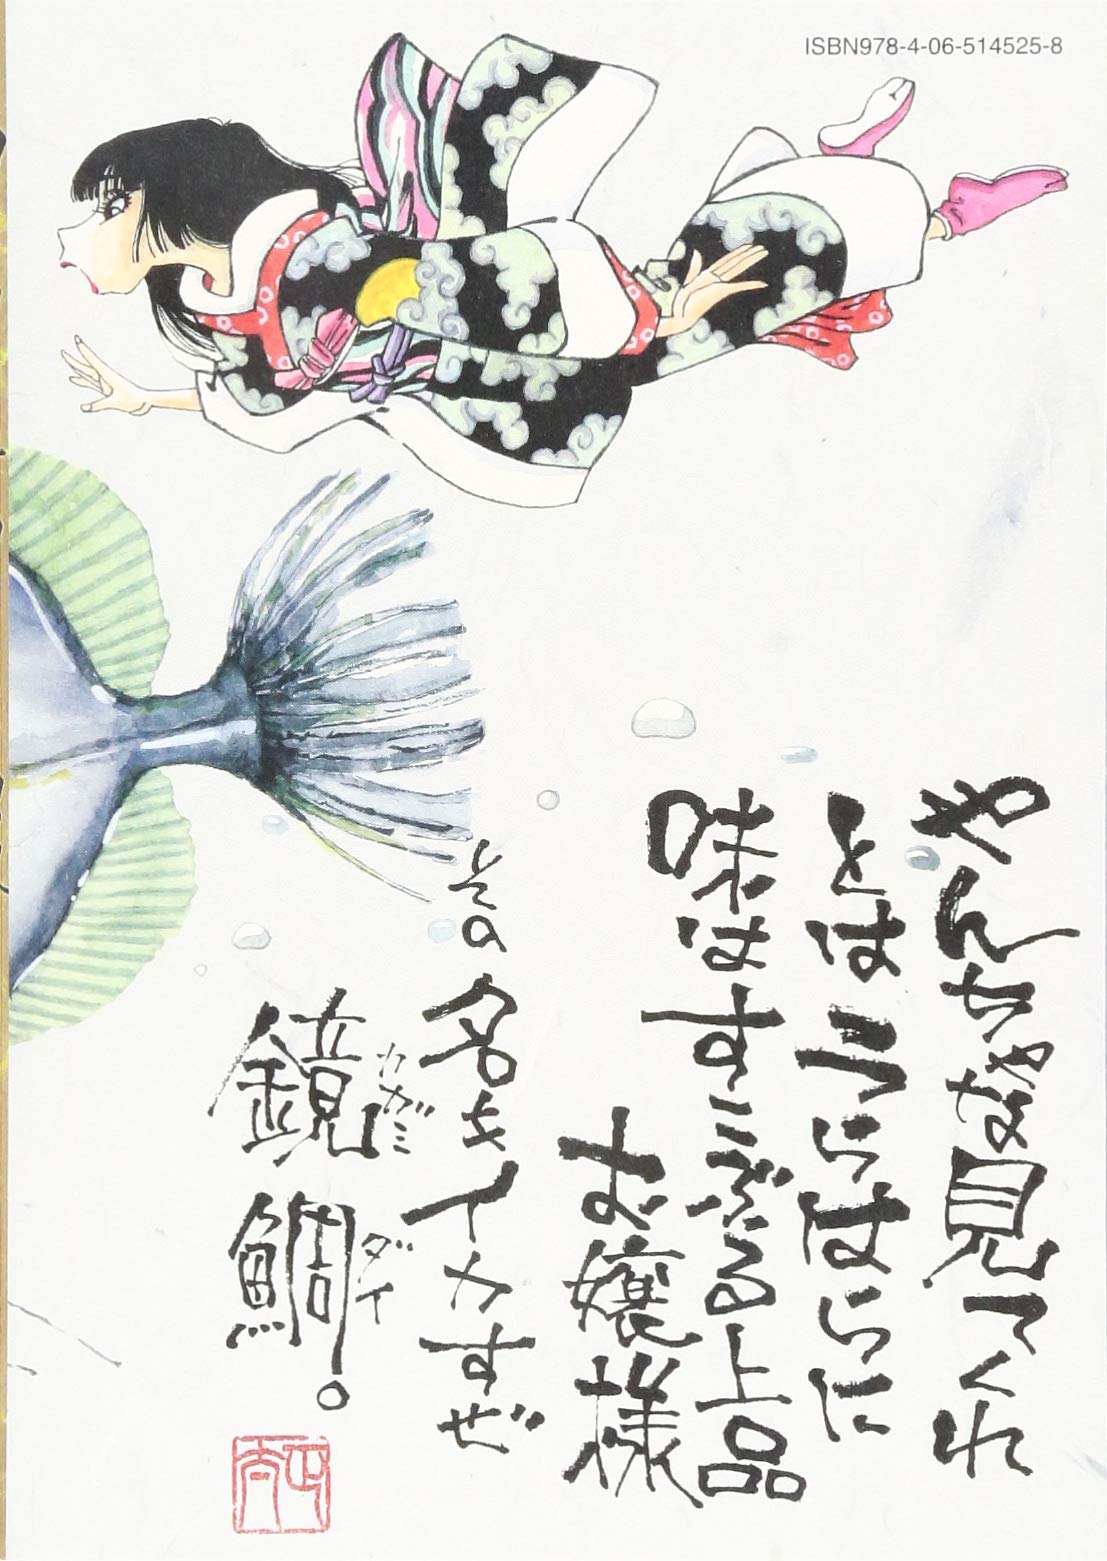 ISBN978-4-06-514525-8
やんちゃな見てくれ
とはうらはらに
味はすこぶる上品
お嬢様
その名もイカすぜ
鏡鯛。
カガミ
ダイ